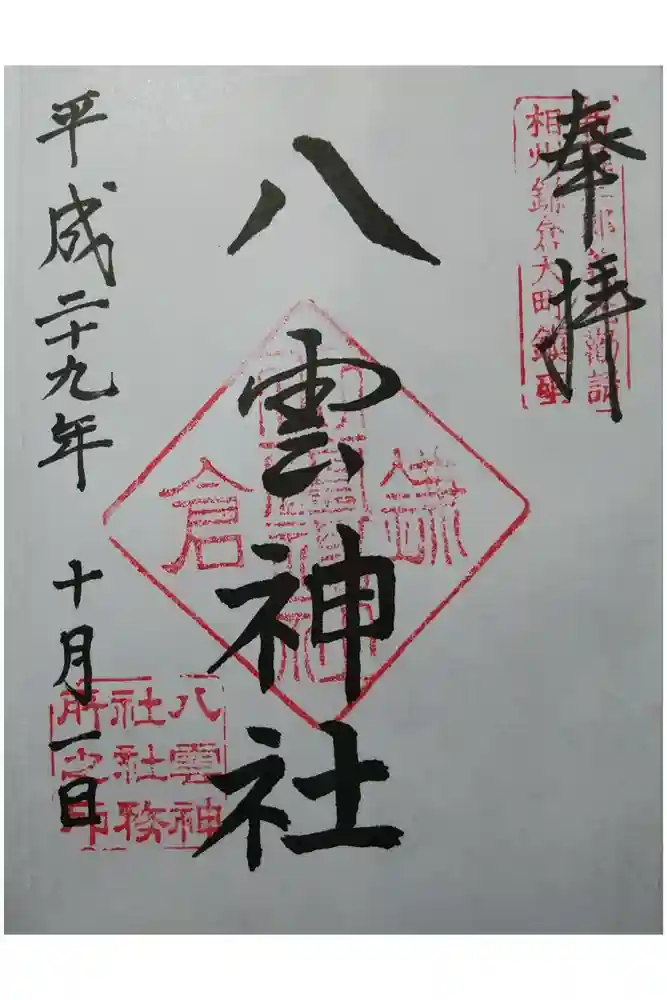 奉拝
相州鎌倉大町鎮座
八雲神社
鎌倉
平成二十九年 十月一日
八雲神
社社務
所之印